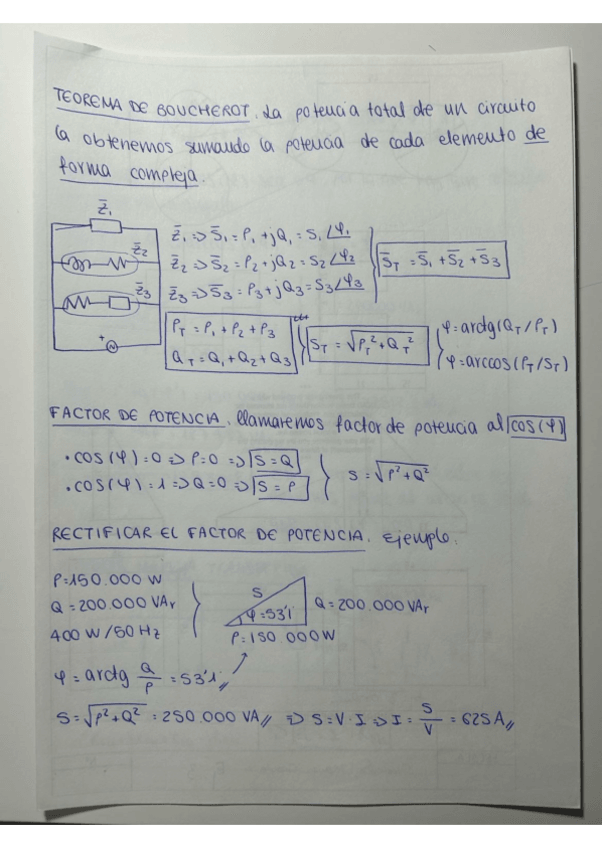 TEOREMA DE BOUCHEROT. La potencia total de un circuito
la obtenemos sumando la potencia de cada elemento de
forma compleja.
Z̄₁
Z̄₂
Z̄₃
+
Z̄₁ => S̄₁ = P₁ + jQ₁ = S₁ ∠φ₁
Z̄₂ => S̄₂ = P₂ + jQ₂ = S₂ ∠φ₂
Z̄₃ => S̄₃ = P₃ + jQ₃ = S₃ ∠φ₃
S̄T = S̄₁ + S̄₂ + S̄₃
PT = P₁ + P₂ + P₃
QT = Q₁ + Q₂ + Q₃
ST = √PT² + QT²
φ = arctg (QT / PT)
φ = arccos (PT / ST)
FACTOR DE POTENCIA. Llamaremos factor de potencia al cos(φ)
• cos(φ) = 0 => P = 0 => S = Q
• cos(φ) = 1 => Q = 0 => S = P
S = √P² + Q²
RECTIFICAR EL FACTOR DE POTENCIA. Ejemplo:
P = 150.000 W
Q = 200.000 VAr
400 W / 50 Hz
S
φ = 53'1
Q = 200.000 VAr
P = 150 000W
φ = arctg Q/P = 53'1
S = √P² + Q² = 250.000 VA => S = V · I => I = S/V = 625A